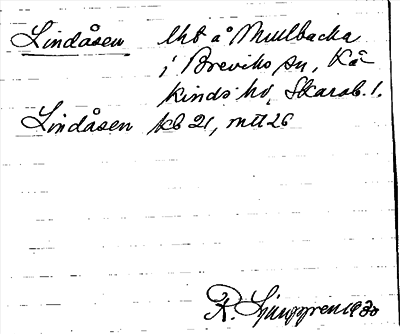 Lindåsen lht å Mullbacka
i Breviks sn, Kå-
kinds hd, Skarab. l.
Lindåsen kb 21, mtl 26
R. Ljunggren 1930